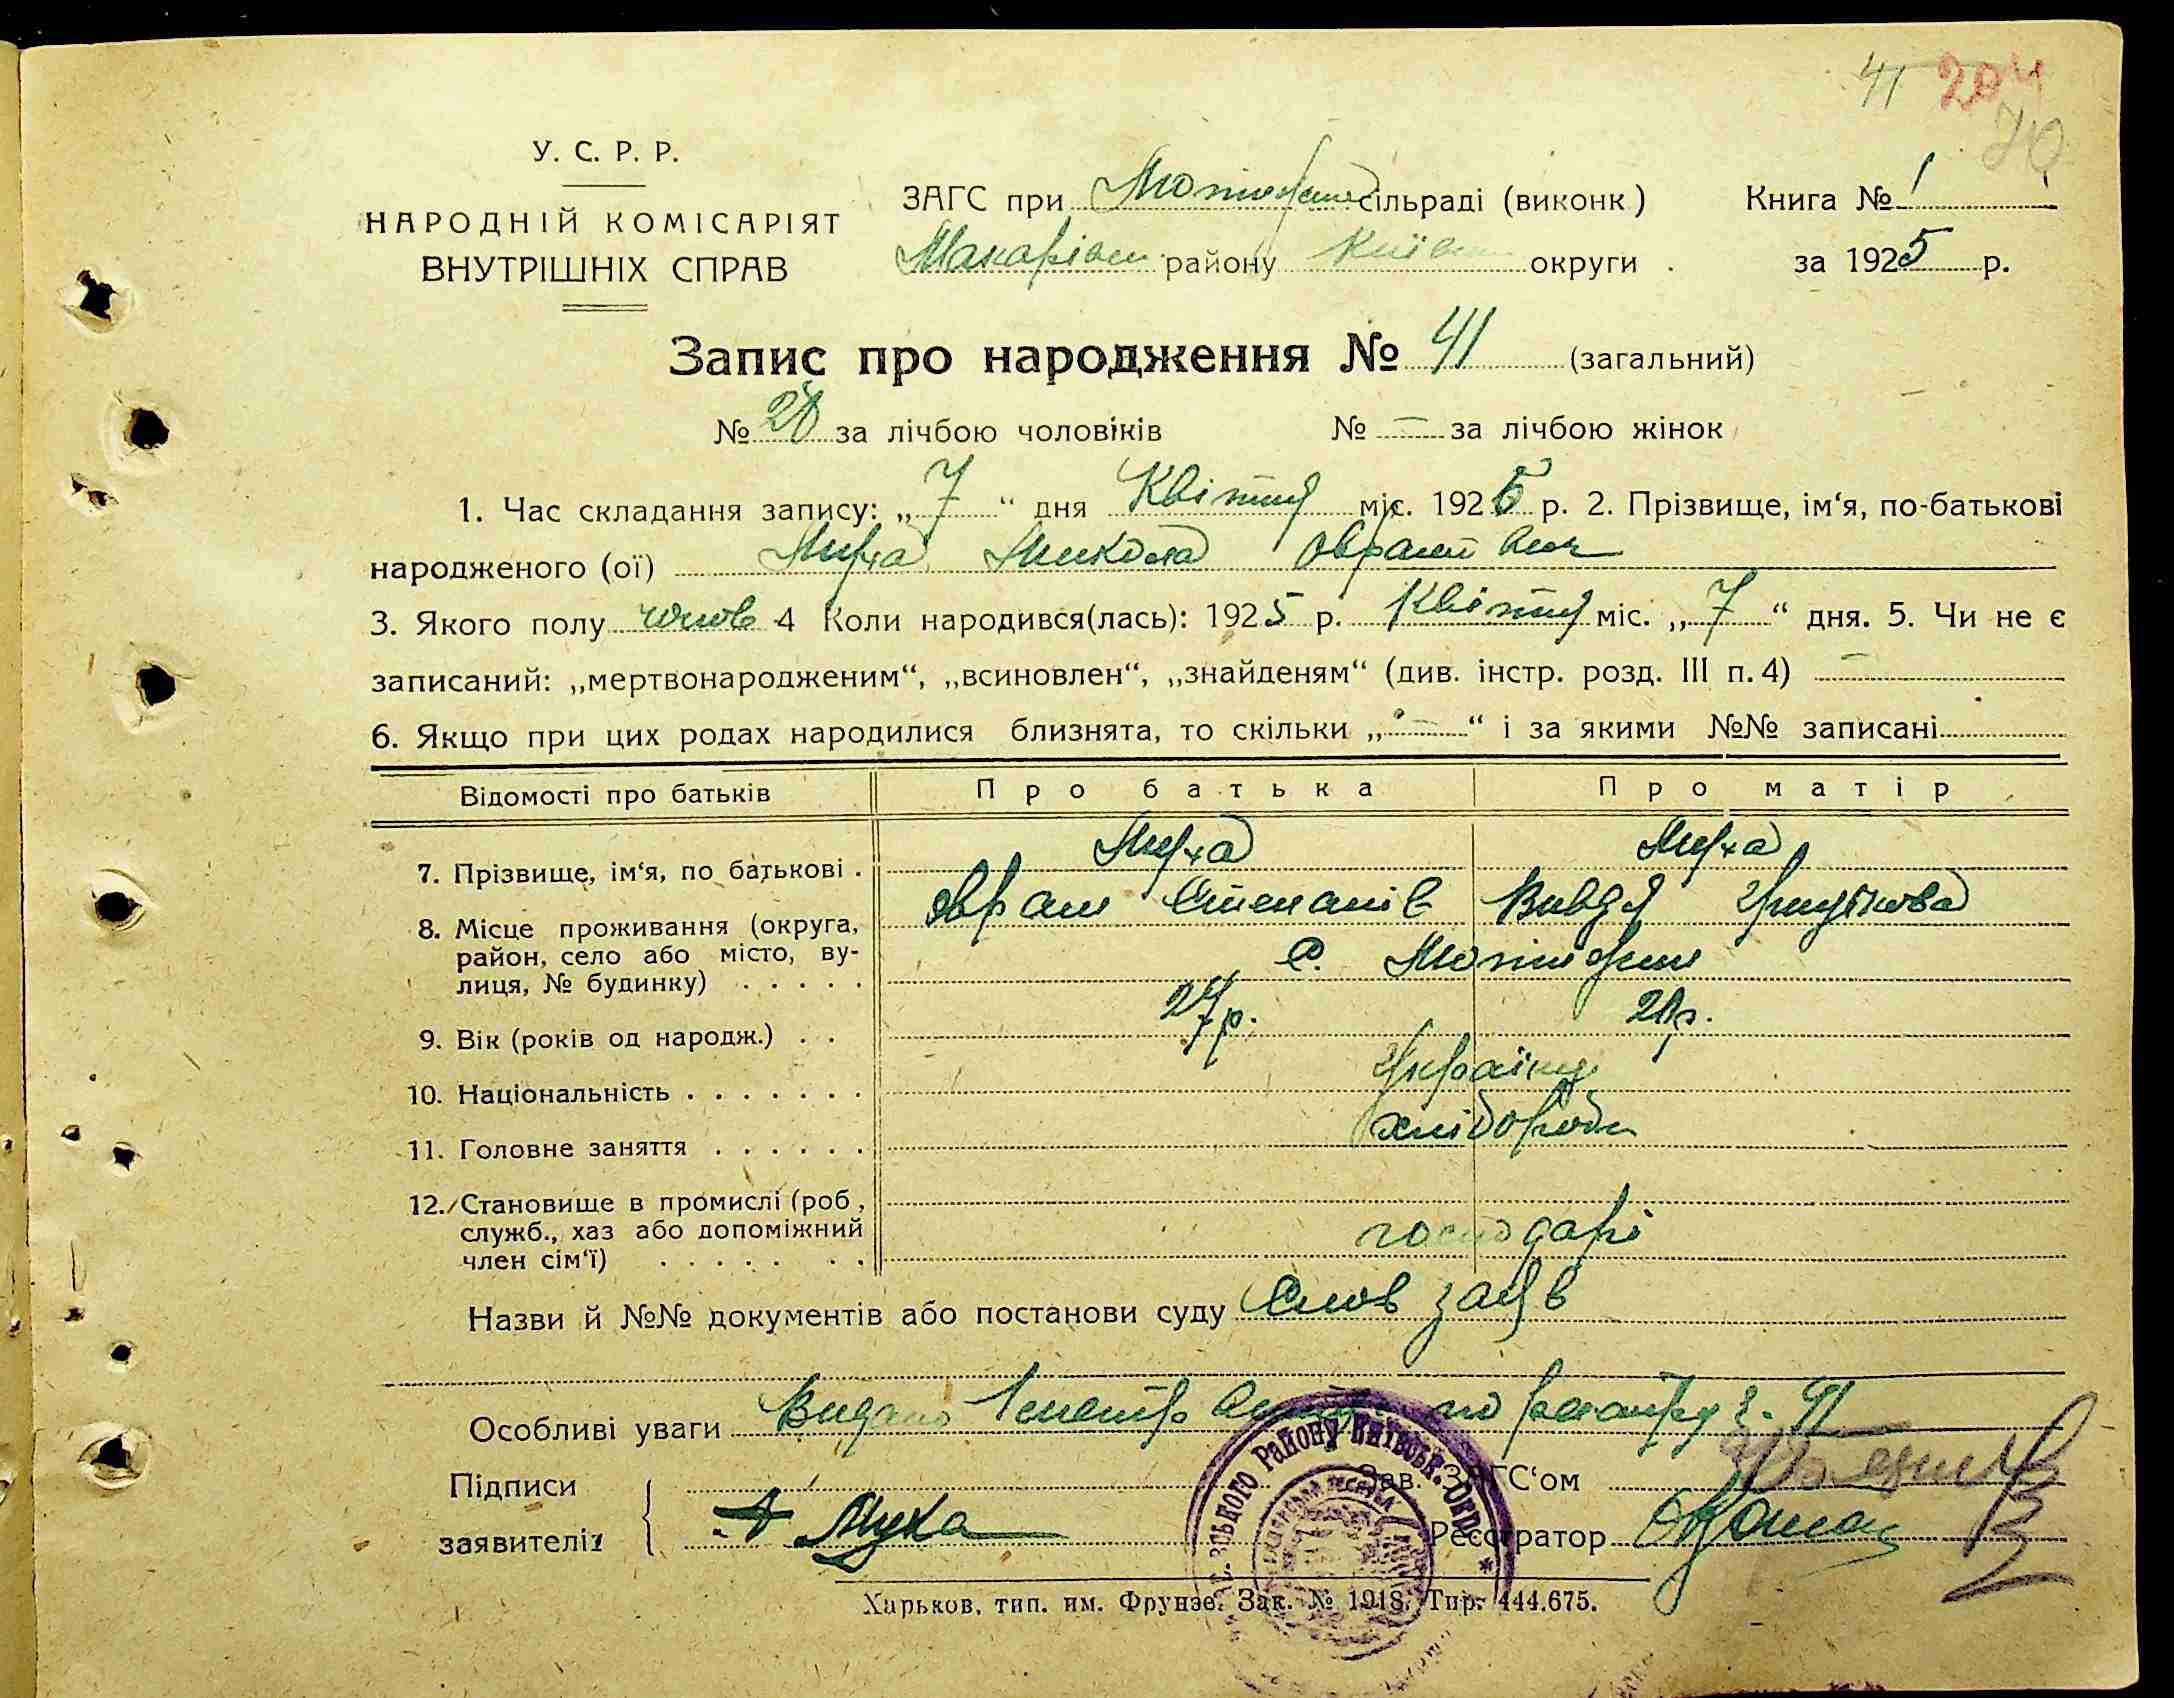 41 204
70
У. С. Р. Р.
НАРОДНІЙ КОМІСАРІЯТ
ВНУТРІШНІХ СПРАВ
ЗАГС при Мотижин сільраді (виконк) Книга № 1
Макарівськ району Київськ округи . за 1925 р.
Запис про народження № 41 (загальний)
№ 20 за лічбою чоловіків № — за лічбою жінок
1. Час складання запису: „7“ дня Квітня міс. 1925 р. 2. Прізвище, ім‘я, по-батькові
народженого (ої) Муха Микола Оврамович
3. Якого полу чолов 4 Коли народився(лась): 1925 р. Квітня міс. „7“ дня. 5. Чи не є
записаний: „мертвонародженим“, „всиновлен“, „знайденям“ (див. інстр. розд. III п. 4) —
6. Якщо при цих родах народилися близнята, то скільки „—“ і за якими №№ записані
Відомості про батьків Про батька Про матір
7. Прізвище, ім‘я, по батькові . Муха Муха
Оврам Степанів Явдя
8. Місце проживання (округа, район, село або місто, вулиця, № будинку) . . . . . с. Мотижин
9. Вік (років од народж.) . . 27р. 20р.
10. Національність . . . . . . . Українці
11. Головне заняття . . . . . . хлібороби
12. Становище в промислі (роб, служб., хаз або допоміжний член сім‘ї) . . . . . . . господарі
Назви й №№ документів або постанови суду Слов заяв
Особливі уваги Видано по реєстру з. 41
Підписи
заявителів А Муха
Зав. ЗАГС‘ом
Реєстратор
Району Київськ. Окр. *
Харьков, тип. им. Фрунзе. Зак. № 1918. Тир. 444.675.